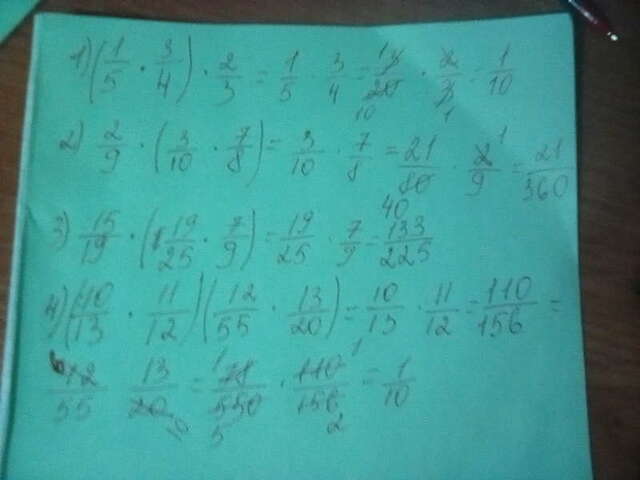 1) (1/5 · 3/4) · 2/3 = 1/5 · 3/4 = 3/20 · 2/3 = 1/10
2) 2/9 · (3/10 · 7/8) = 3/10 · 7/8 = 21/80 · 2/9 = 21/360
3) 15/19 · (19/25 · 7/9) = 19/25 · 7/9 = 133/225
4) (10/13 · 11/12) (12/55 · 13/20) = 10/13 · 11/12 = 110/156 =
12/55 13/20 = 78/550 · 110/156 = 1/10